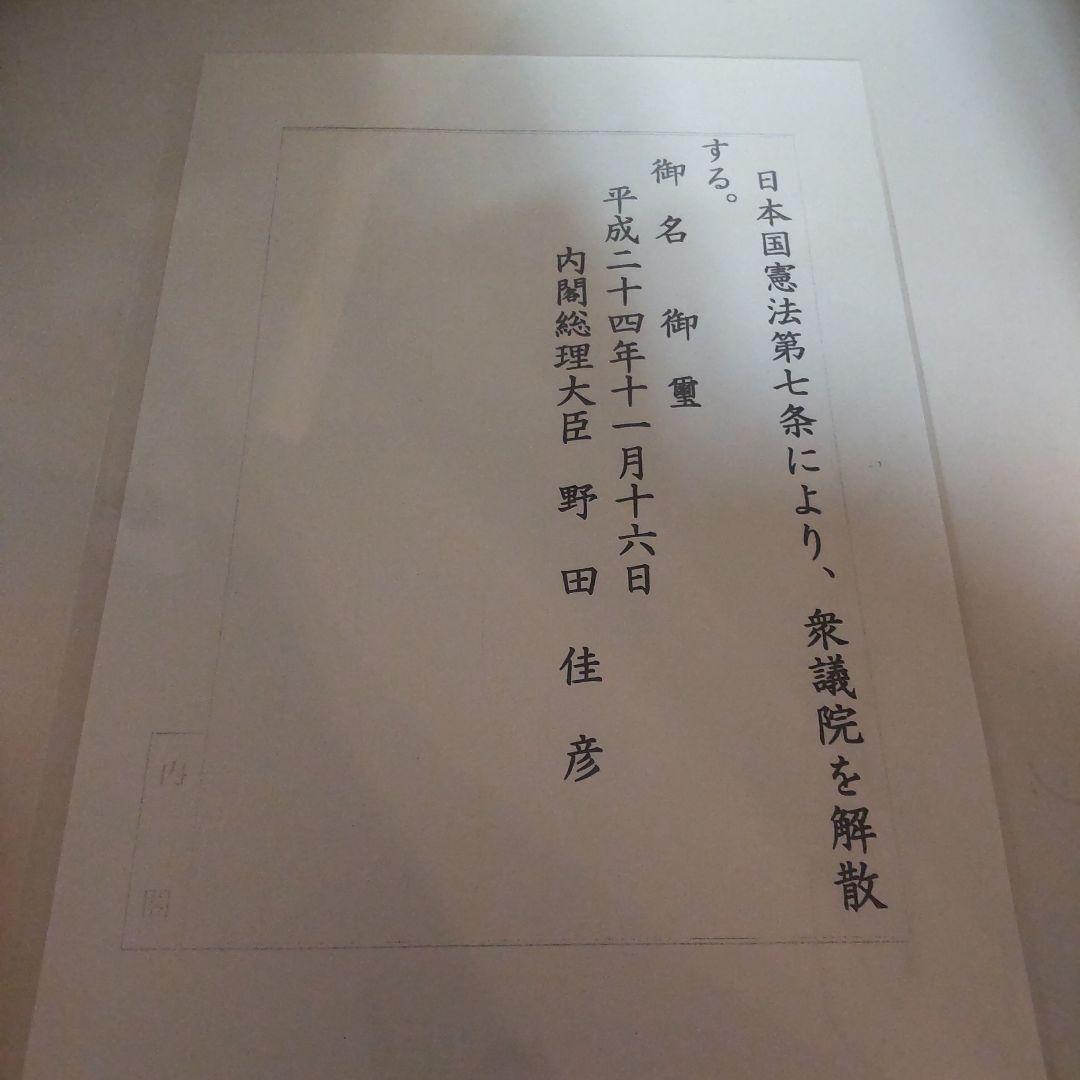 日本国憲法第七条により、衆議院を解散
する。
御名 御璽
平成二十四年十一月十六日
内閣総理大臣 野田佳彦
内閣